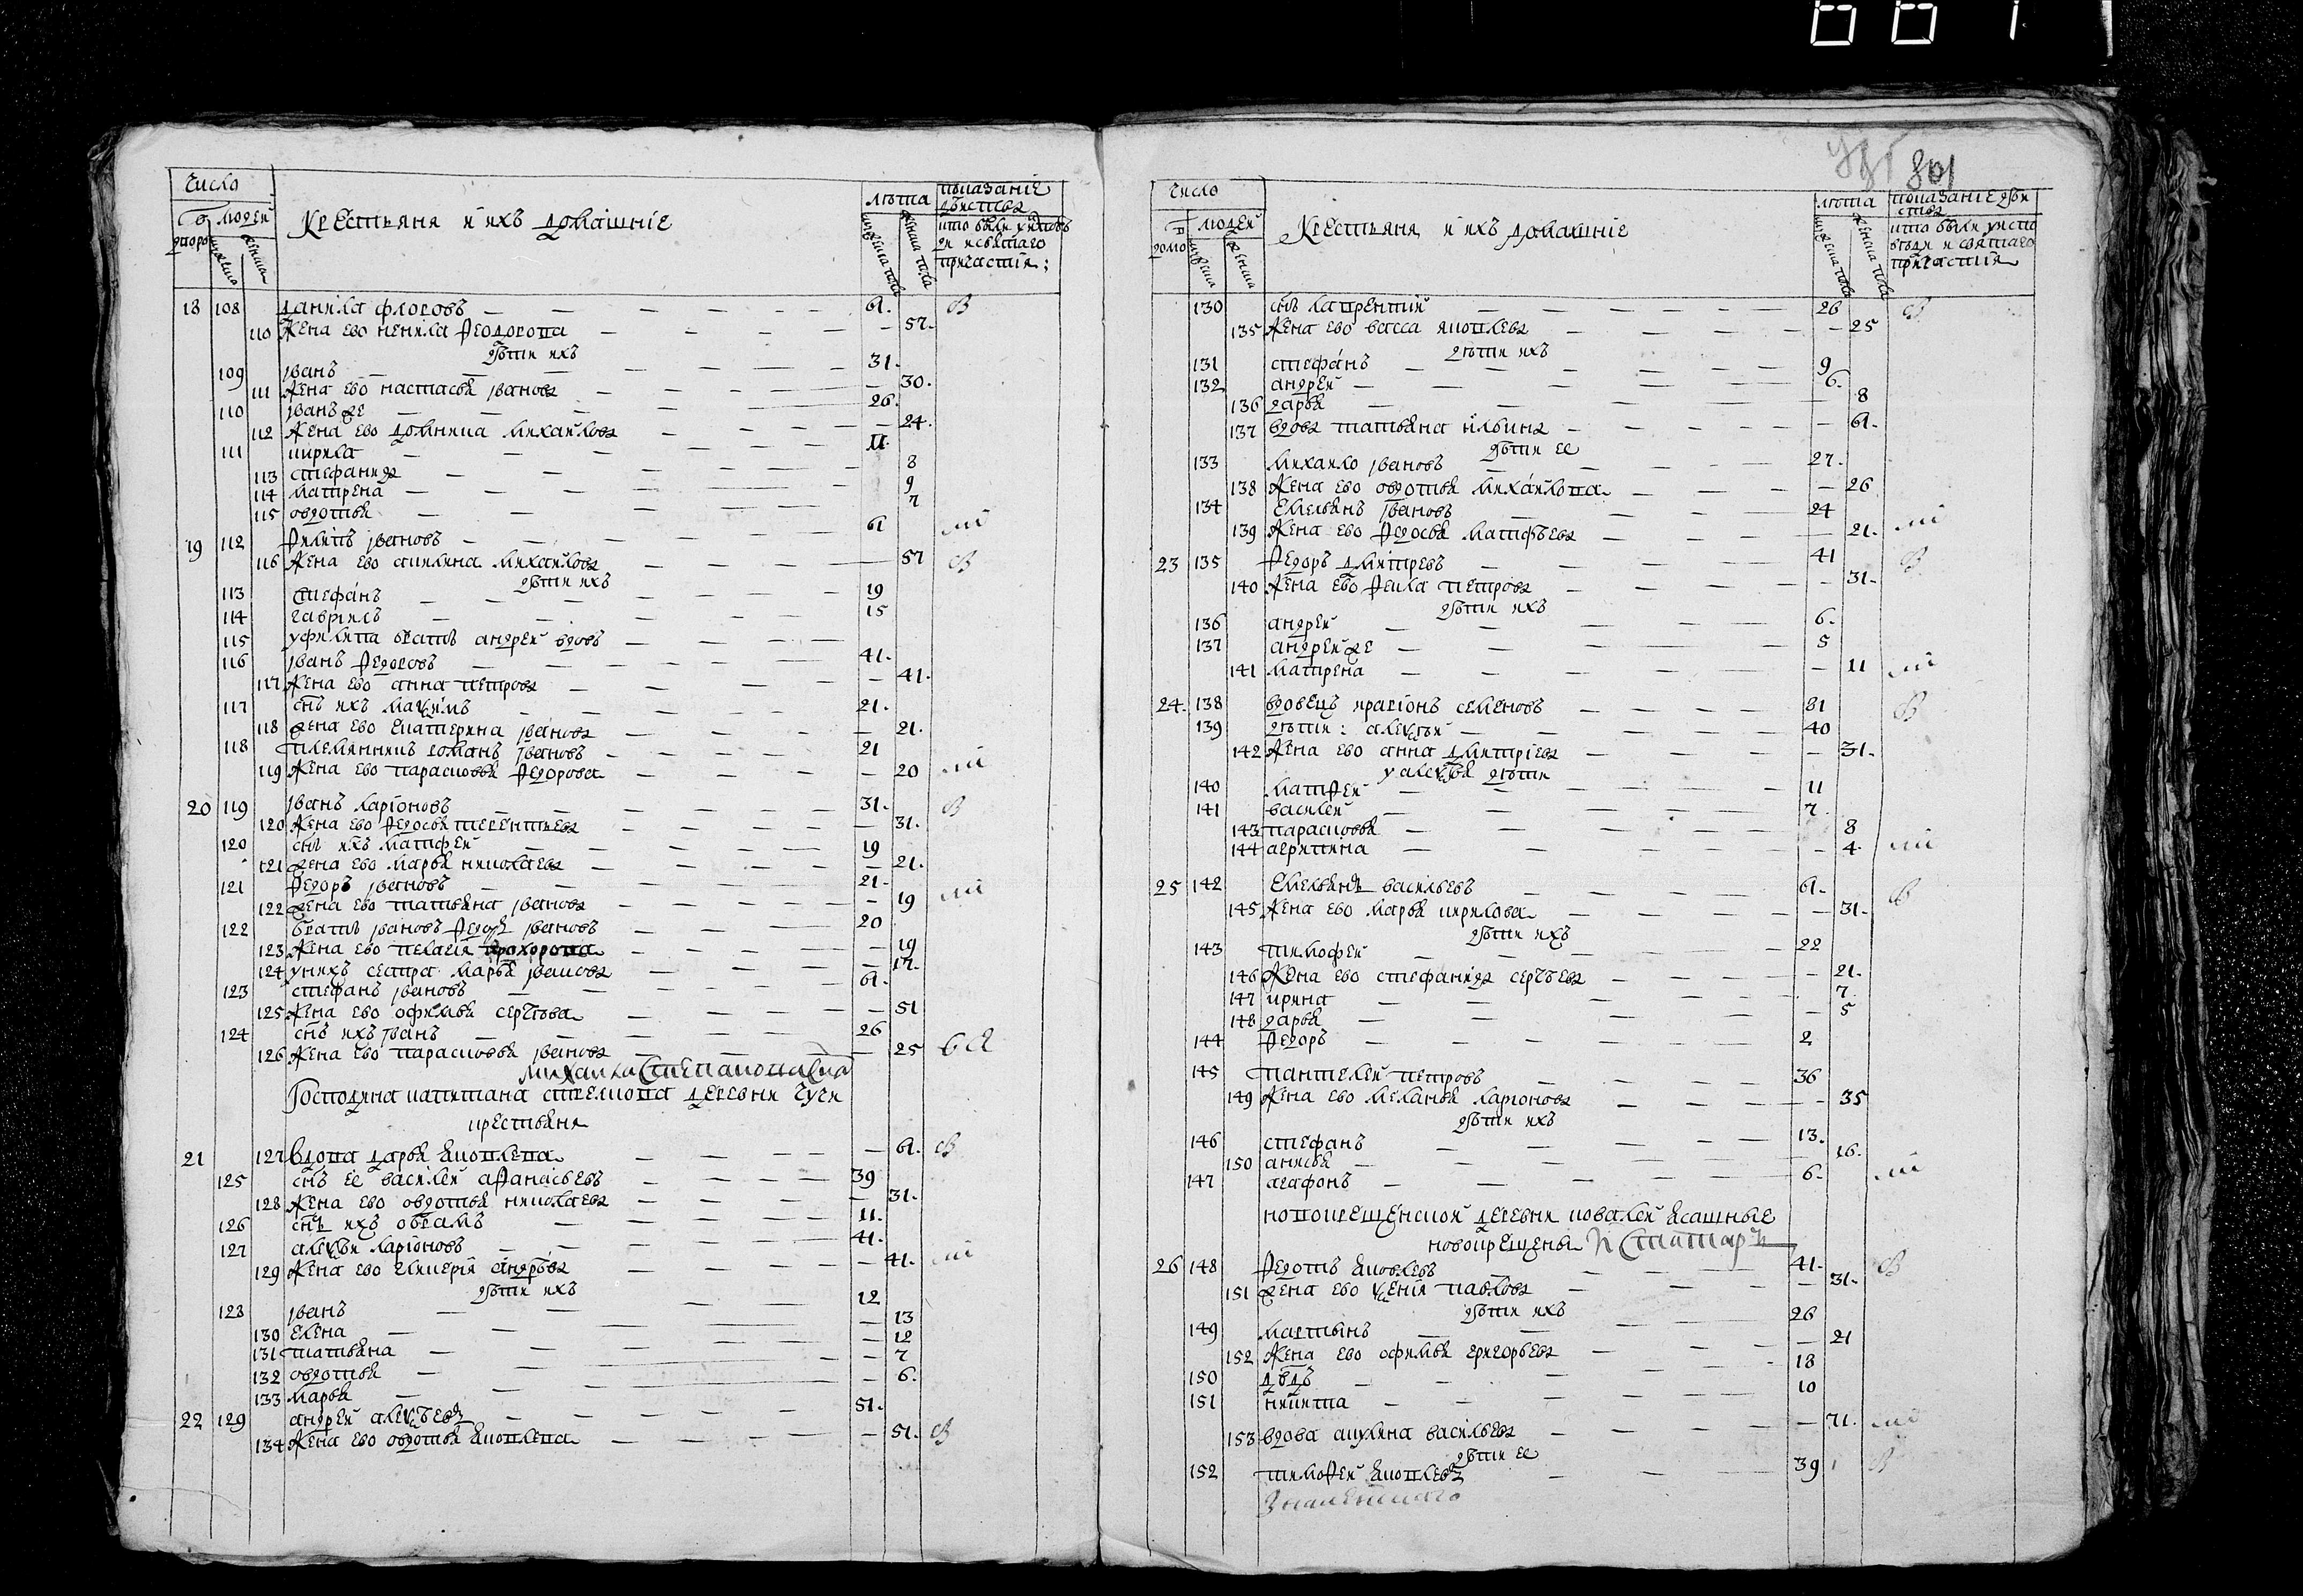 801
число
дворовъ людей
мужеска женска
Крестьяня и ихъ домашніе
лѣта
мужеска пола женска пола
показаніе действа
кто были у исповеди и святаго причастия
18 108 данила флоровъ 61. В
110 жена ево ненила Ѳеодорова 57.
дѣти ихъ
109 иванъ 31.
111 жена ево настасья иванова 30.
110 иванъ же 26.
112 жена ево домника михайлова 24.
111 кирила 11.
113 стефанида 8
114 матрена 9
115 овдотья 7
19 112 Ѳилипъ ивановъ 61
116 жена ево акилина михайлова 57 В
дѣти ихъ
113 стефанъ 19
114 гаврилъ 15
115 у филипа братъ андрей вдовъ
116 иванъ Ѳедоровъ 41.
117 жена ево анна петрова 41.
117 снъ ихъ маѯимъ 21.
118 жена ево екатерина иванова 21.
118 племянникъ романъ ивановъ 21
119 жена ево парасковья Ѳедорова 20
20 119 иванъ ларионовъ 31. В
120 жена ево Ѳедосья терентиева 31.
120 снъ ихъ матфей 19
121 жена ево марья николаева 21.
121 Ѳедоръ ивановъ 21.
122 жена ево татьяна иванова 19
122 братъ ивановъ Ѳедоръ ивановъ 20
123 жена ево пелагия прохорова 19
124 у нихъ сестра марья иванова 17.
123 стефанъ ивановъ 61.
125 жена ево офимья сергѣва 51
124 снъ ихъ иванъ 26
126 жена ево парасковья иванова 25
михаила степанова сна
Господина капитана стрелкова деревни Чуги
крестьяня
21 127 вдова дарья яковлева 61. В
125 снъ ее василей аѲанасьевъ 39
128 жена ево овдотья николаева 31.
126 снъ ихъ обрамъ 11.
127 алеѯѣй ларионовъ 41.
129 жена ево гликерия андрѣева 41.
дѣти ихъ
128 иванъ 12
130 елена 13
131 татьяна 12
132 овдотья 7
133 марья 6.
22 129 андрей алеѯѣевъ 51.
134 жена ево овдотья яковлева 51. В
число
домовъ людей
мужеска женска
Крестьяня и ихъ домашніе
лѣта
мужеска пола женска пола
показаніе действа
кто были у исповеди и святаго причастия
130 снъ лаврентий 26 В
135 жена ево васса яковлева 25
дѣти ихъ
131 стефанъ 9
132 андрей 6.
136 дарья 8
137 вдова татьяна ильина 61.
дѣти ее
133 михайло ивановъ 27.
138 жена ево овдотья михайлова 26
134 Емельянъ ивановъ 24
139 жена ево Ѳедосья матфѣева 21.
23 135 Ѳедоръ дмитревъ 41 В
140 жена ево Ѳекла петрова 31.
дѣти ихъ
136 андрей 6.
137 андрей же 5
141 матрена 11
24. 138 вдовецъ ираклионъ семеновъ 81 В
139 дѣти: алеѯѣй 40
142 жена ево анна дмитриева 31.
у алеѯѣя дѣти
140 матѲей 11
141 василей 7.
143 парасковья 8
144 агрипина 4.
25 142 Емельянъ васильевъ 61. В
145 жена ево марья кирилова 31.
дѣти ихъ
143 тимофей 22
146 жена ево стефанида сергѣева 21.
147 ирина 7.
148 дарья 5
144 Ѳедоръ 2
145 пантелей петровъ 36
149 жена ево меланья ларионова 35
дѣти ихъ
146 стефанъ 13.
150 анисья 16.
147 агафонъ 6.
новокрещенской деревни ковалей ясашные
новокрещены
26 148 Ѳедотъ яковлевъ 41. В
151 жена ево ѯения павлова 31.
дѣти ихъ
149 мартынъ 26
152 жена ево офимья григорьева 21
150 двдъ 18
151 никита 10
153 вдова акулина васильева 71.
дѣти ее
152 тимоѲей яковлевъ 39 В